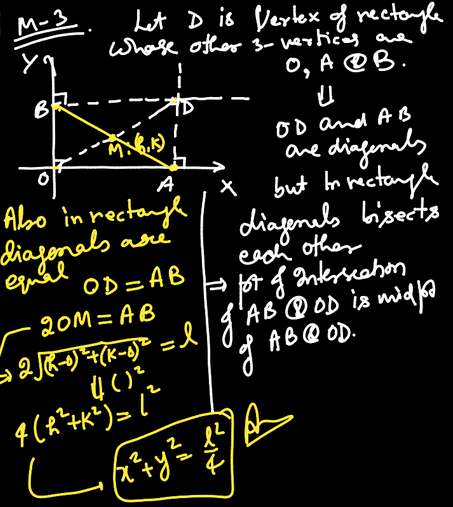 M-3
Let D is Vertex of rectangle
whose other 3-vertices are
O, A & B.
⇓
OD and AB
are diagonals
but In rectangle
diagonals bisects
each other
⇒ pt of Intersection
of AB & OD is mid pt
of AB & OD.
Y
B
D
M:(h,k)
O
A
X
Also in rectangle
diagonals are
equal OD = AB
2OM = AB
⇒ 2√(h-0)²+(k-0)² = l
⇓ ( )²
4(h²+k²) = l²
x²+y² = l²/4